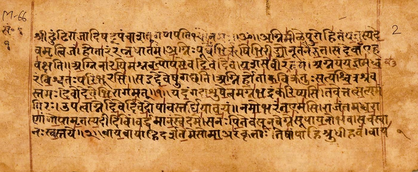 M-66
2
॥ अग्निमीळे पुरोहितं यज्ञस्य दे
वमृत्विजं होतारं रत्नधातमं ॥ अग्निः पूर्वेभिर्ऋषिभिरीड्यो नूतनैरुत स देवाँ एह
वक्षति ॥ अग्निना रयिमश्नवत्पोषमेव दिवेदिवे यशसं वीरवत्तमं ॥ अग्ने यं यज्ञमध्व
रं विश्वतः परिभूरसि ॥ स इद्देवेषु गच्छति ॥ अग्निर्होता कविक्रतुः सत्यश्चित्रश्रव
स्तमः देवो देवेभिरागमत् ॥१॥ यदंग दाशुषे त्वमग्ने भद्रं करिष्यसि तवेत्तत्सत्यमं
गिरः ॥ उप त्वाग्ने दिवेदिवे दोषावस्तर्धिया वयं ॥ नमो भरंत एमसि राजंतमध्वरा
णां गोपामृतस्य दीदिविं वर्धमानं स्वे दमे ॥ स नः पितेव सूनवेग्ने सूपायनो भव सचस्वा
नः स्वस्तये ॥२॥ वायवायाहि दर्शतेमे सोमा अरंकृताः तेषां पाहि श्रुधी हवं ॥ वाय